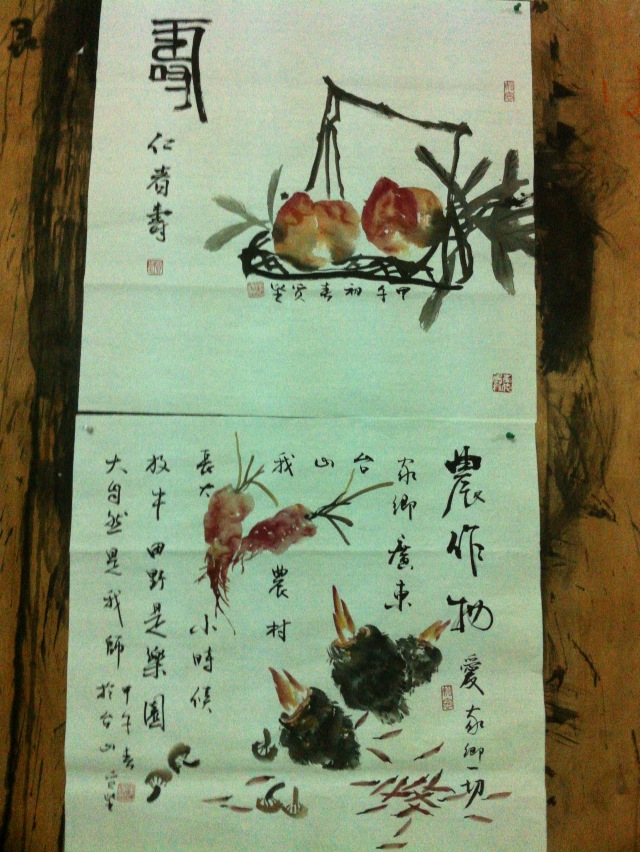 壽
仁者壽
甲午初春
農作物
愛家鄉一切
家鄉廣東
台
山
我農村
長大小時候
放牛田野是樂園
大自然是我師
甲午春
於台山